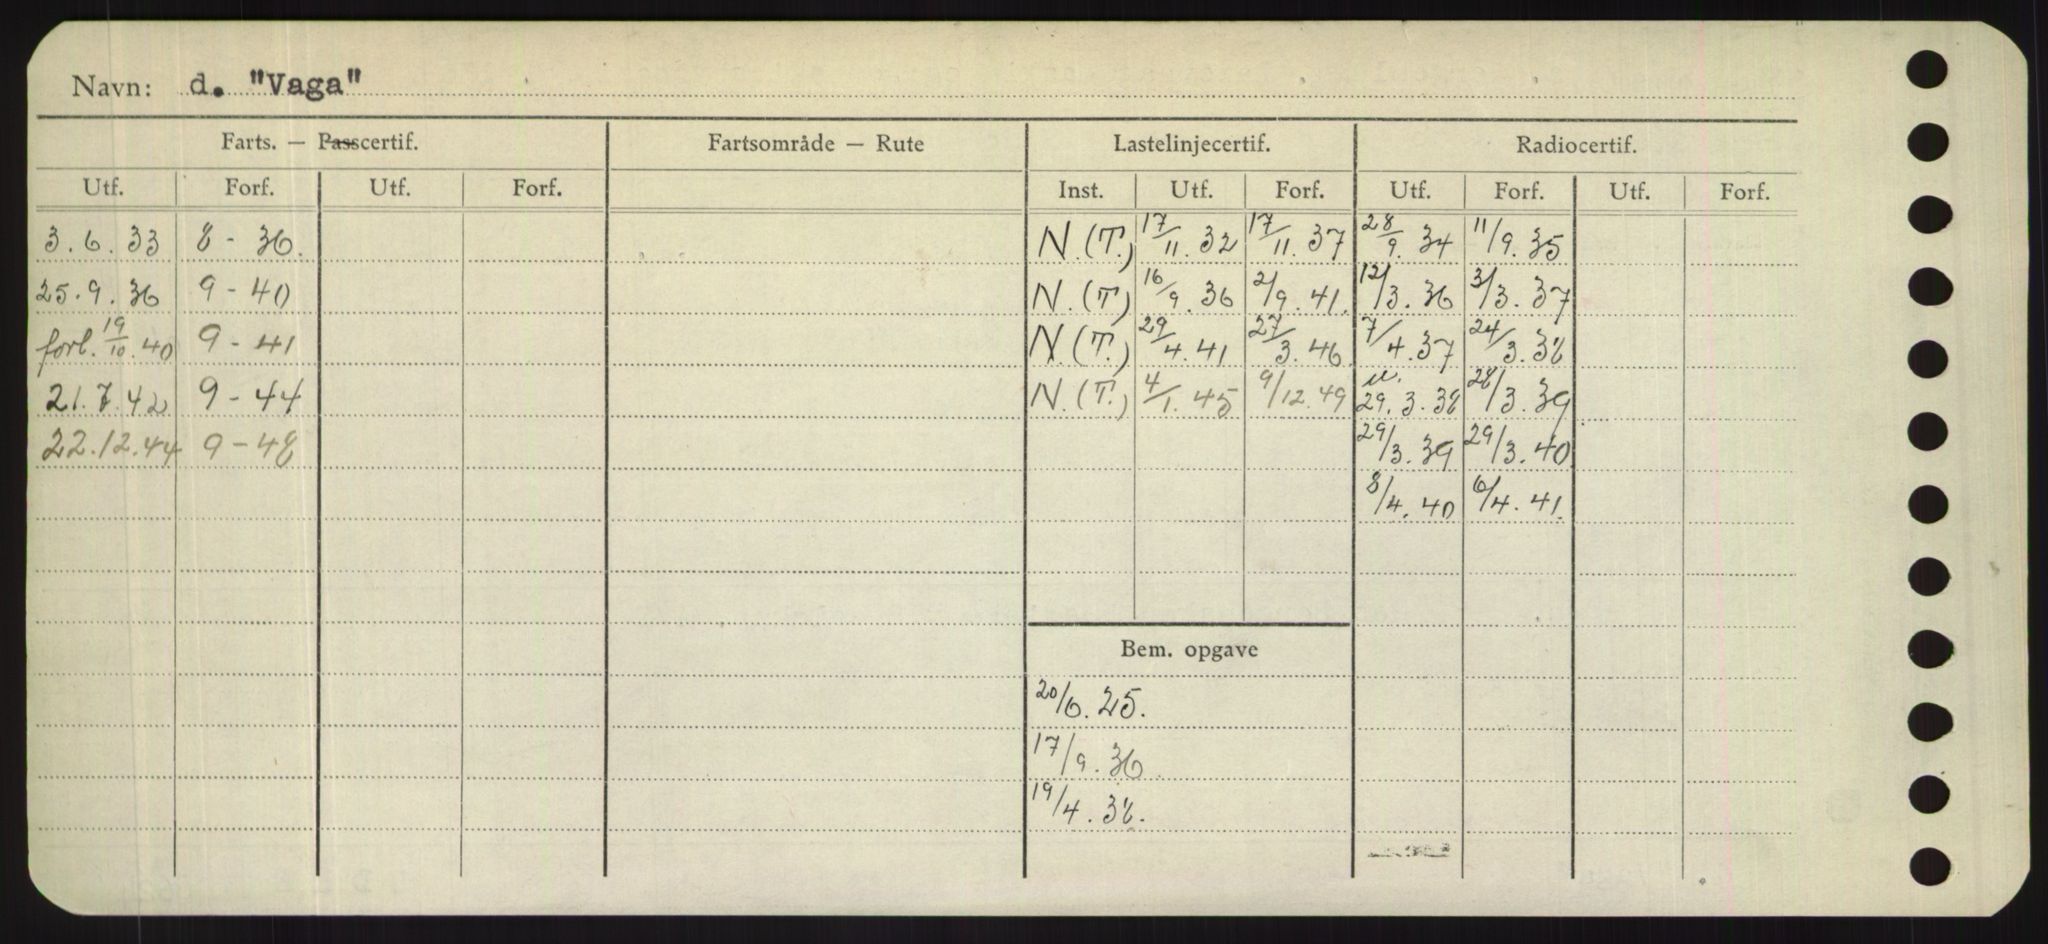 Navn: d. "Vaga"
Farts. — Passcertif. Fartsområde — Rute Lastelinjecertif. Radiocertif.
Utf. Forf. Utf. Forf. Inst. Utf. Forf. Utf. Forf. Utf. Forf.
3.6.33 8 - 36. N.(T.) 17/11.32 17/11.37 28/9.34 11/9.35
25.9.36 9 - 40 N.(T) 16/9.36 2/9.41. 12/3.36 3/3.37
forl. 19/10.40 9 - 41 N.(T.) 29/4.41 27/3.46 7/4.37 24/3.38
21.7.42 9 - 44 N.(T.) 4/1.45 9/12.49 29.3.38 28/3.39
22.12.44 9 - 48 29/3.39 29/3.40
8/4.40 6/4.41.
Bem. opgave
20/6.25.
17/9.36
19/4.38.